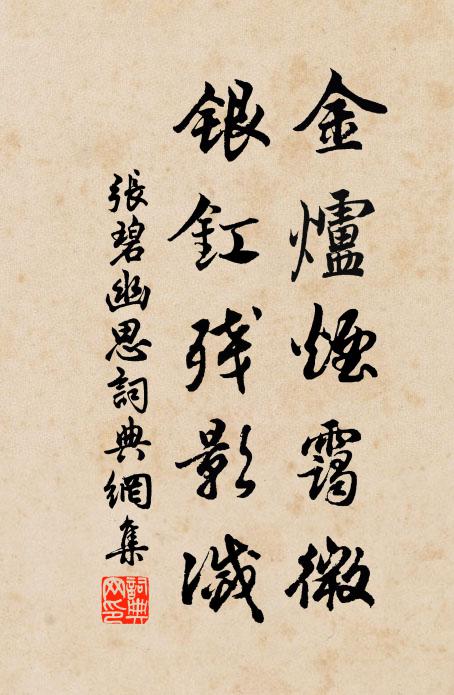 金爐煙靄微
銀釭残影滅
張碧幽思詞典網集
詞典网印